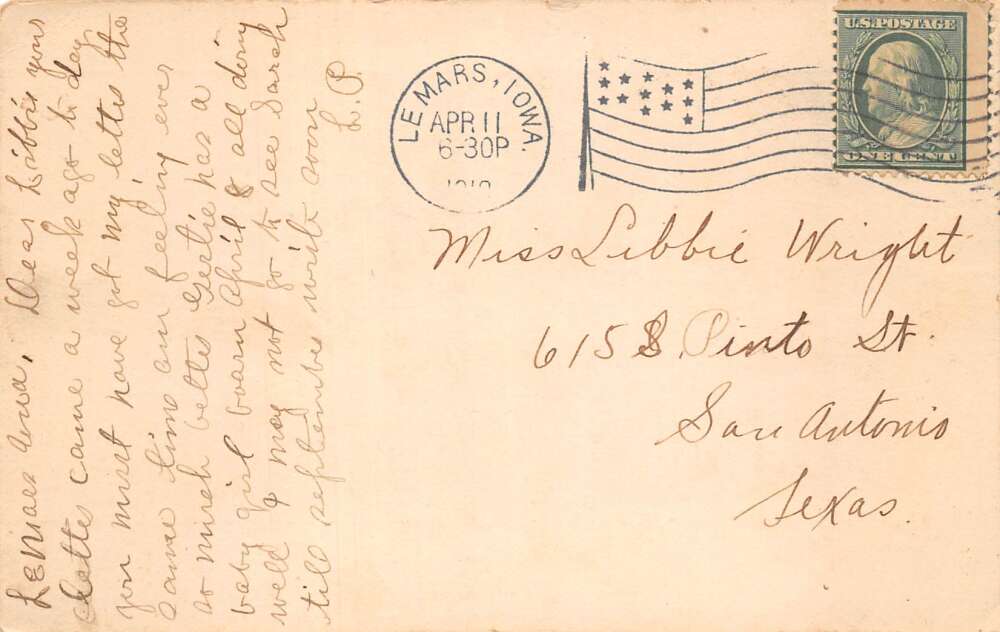 LeMars Iowa, Dear Libbie your
letter came a week ago to day
you must have got my letter the
same time am feeling ever
so much better Gertie has a
baby girl born April 8 all doing
well I may not go to see Sarah
till september write soon
L. P.
LE MARS, IOWA.
APR 11
6-30P
U.S. POSTAGE
ONE CENT
Miss Libbie Wright
615 S. Pinto St.
San Antonio
Texas.